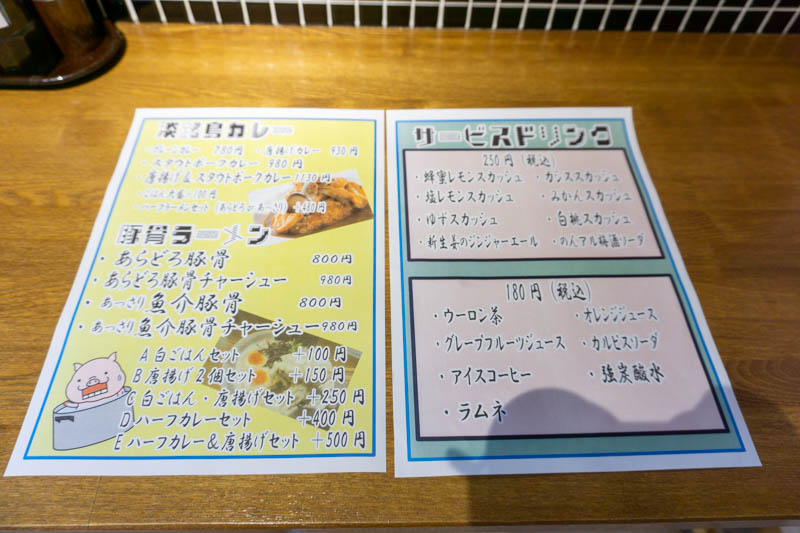 淡路島カレー
・カレーカレー 780円 ・唐揚げカレー 930円
・スタウトポークカレー 980円
・唐揚げ&スタウトポークカレー 1130円
・ごはん大盛+100円
・ハーフラーメンセット (あらどろorあっさり) +480円
豚骨ラーメン
・あらどろ豚骨 800円
・あらどろ豚骨チャーシュー 980円
・あっさり魚介豚骨 800円
・あっさり魚介豚骨チャーシュー 980円
A白ごはんセット +100円
B唐揚げ2個セット +150円
C白ごはん・唐揚げセット +250円
Dハーフカレーセット +400円
Eハーフカレー&唐揚げセット +500円
サービスドリンク
250円 (税込)
・蜂蜜レモンスカッシュ ・カシススカッシュ
・塩レモンスカッシュ ・みかんスカッシュ
・ゆずスカッシュ ・白桃スカッシュ
・新生姜のジンジャーエール ・のんアル梅酒ソーダ
180円 (税込)
・ウーロン茶 ・オレンジジュース
・グレープフルーツジュース ・カルピスソーダ
・アイスコーヒー ・強炭酸水
・ラムネ